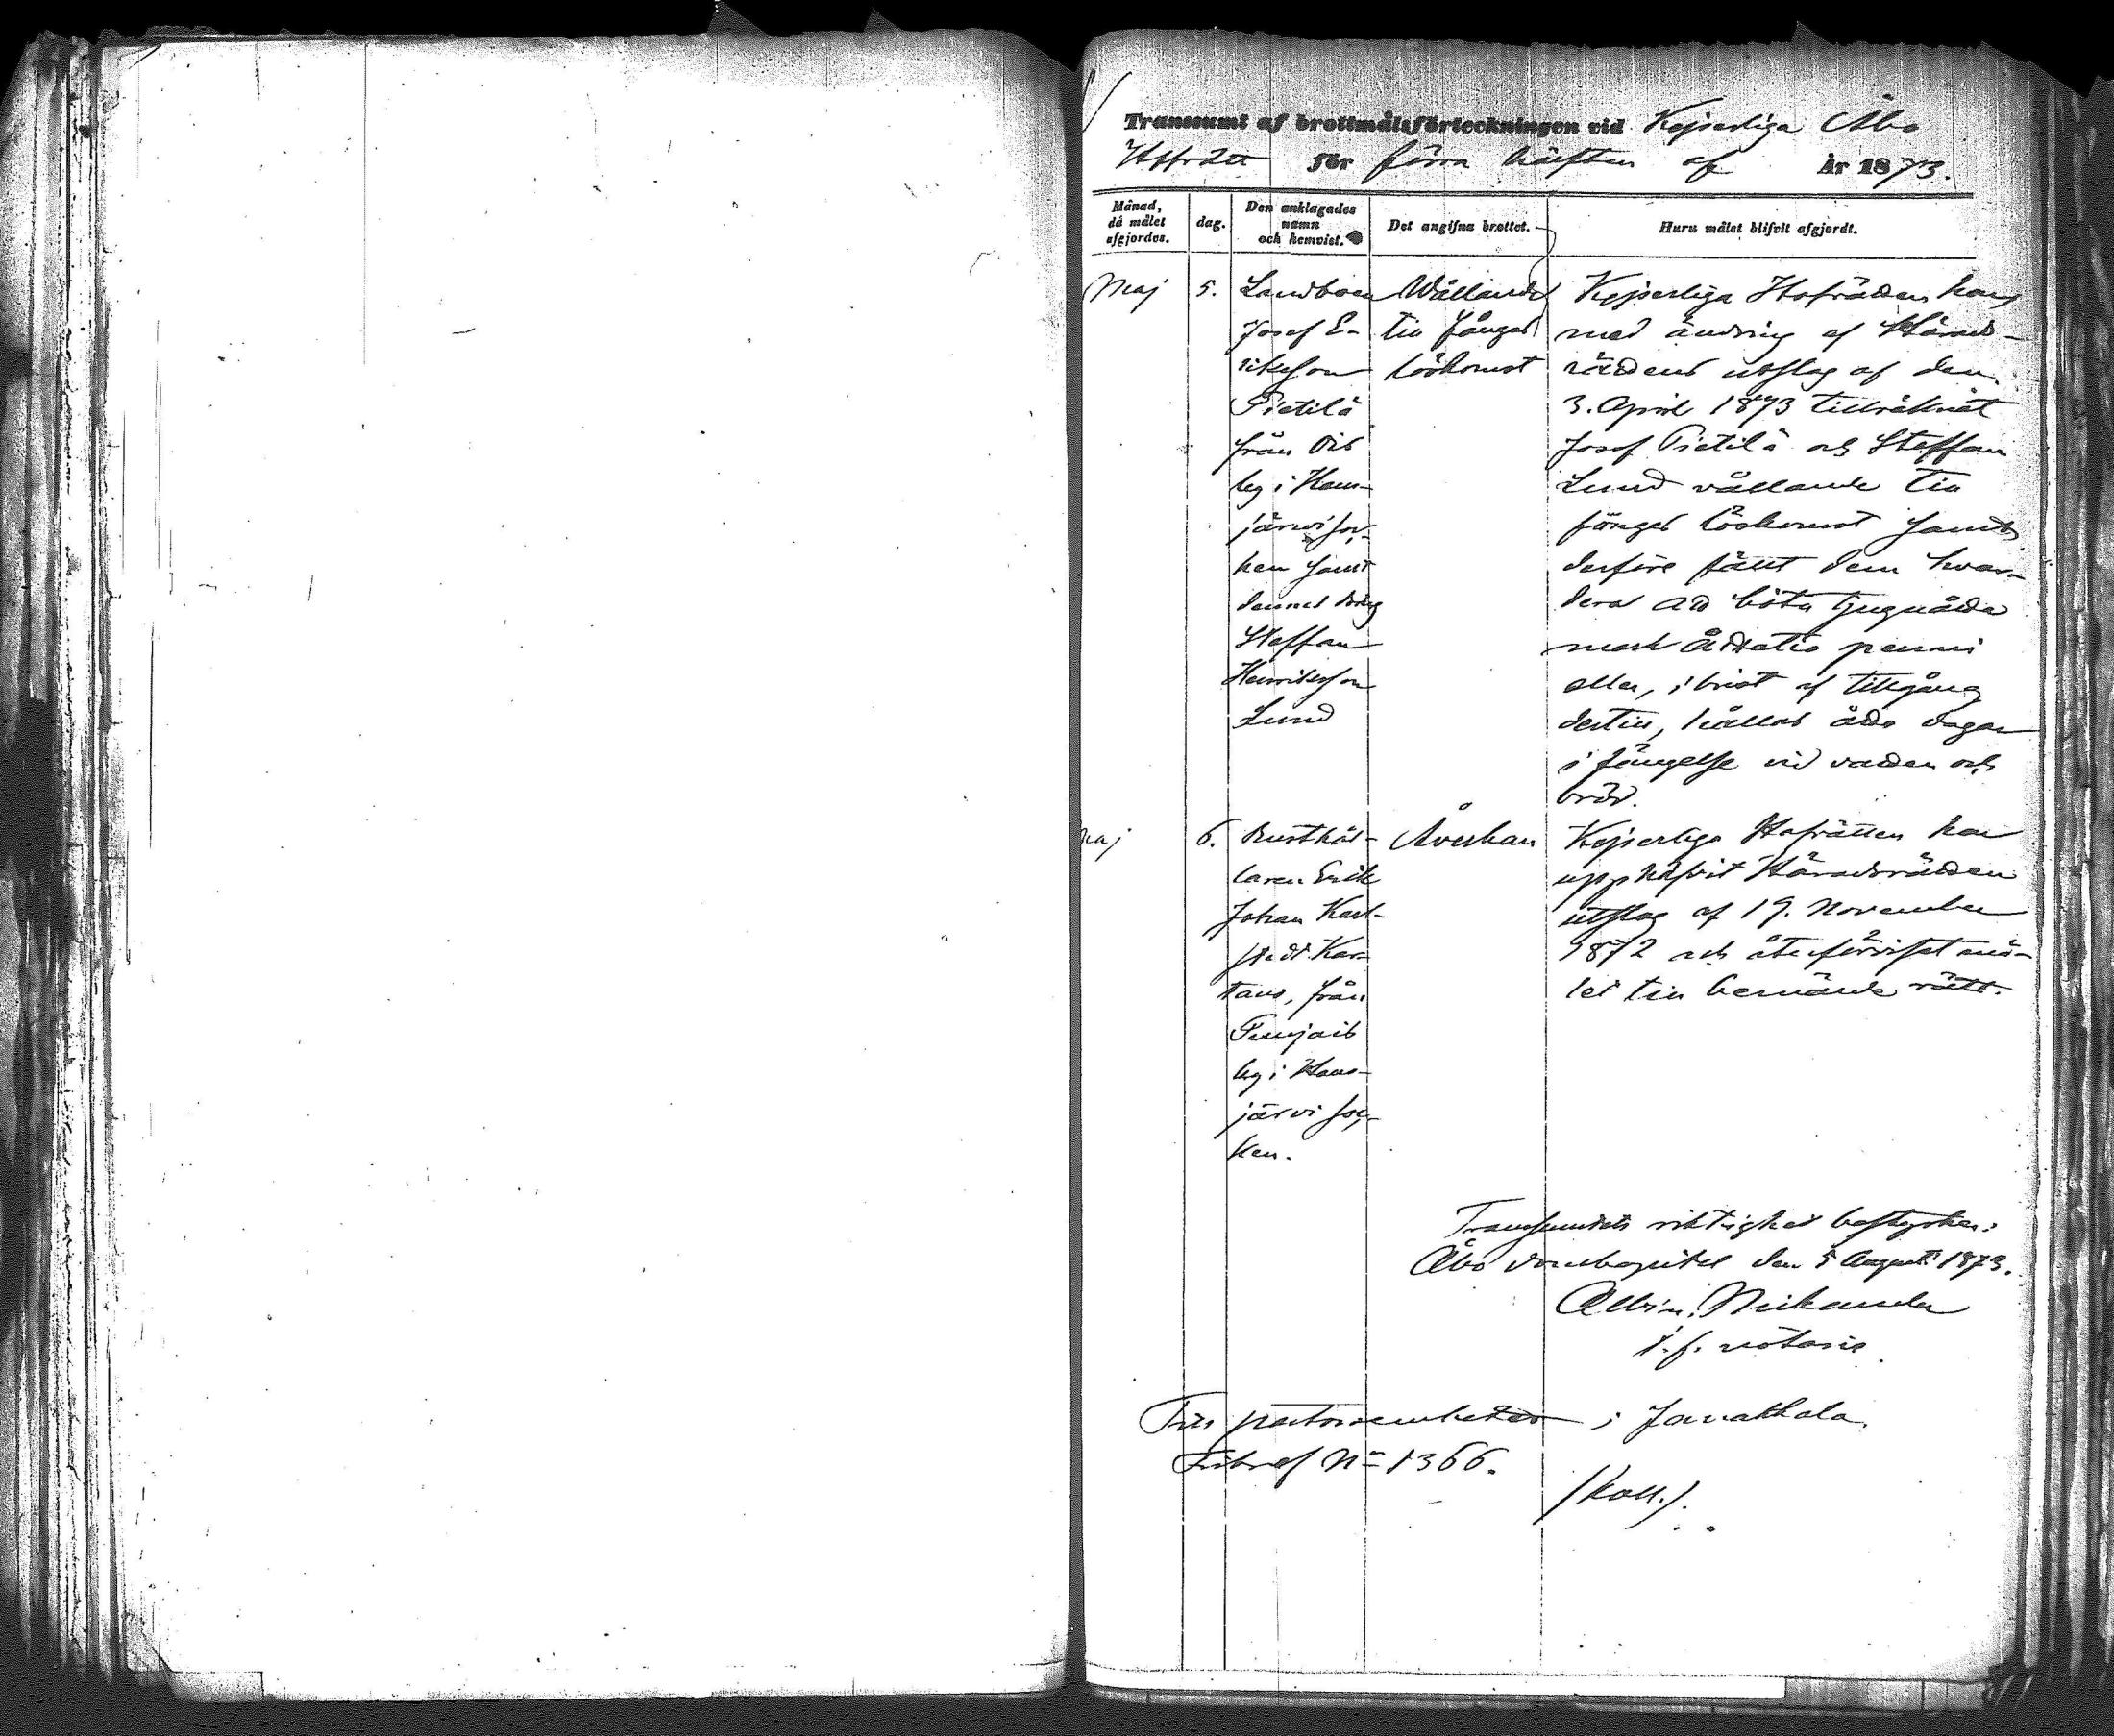 Transsumt af brottmålsförteckningen vid Kejserliga Åbo
Hofrätt för förra hälften af År 1873.
Månad,
då målet
afgjordes.
dag.
Den anklagades
namn
och hemvist.
Det angifna brottet.
Huru målet blifvit afgjordt.
Maj
5.
Landboen
Josef E-
riksson
Pietilä
från Ois
by i Haus-
järvi soc-
ken samt
dennes dräng
Steffan
Henriksson
Lund
Wållande
till fånges
löskomst
Kejserliga Hofrätten har,
med ändring af Härads-
rättens utslag af den
3. April 1873 tillräknat
Josef Pietilä och Steffan
Lund vållande till
fånges löskomst samt
derföre fällt dem hvar-
dera att böta tjuguåtta
mark åttatio penni
eller, i brist af tillgång
dertill, hållas åtta dagar
i fängelse vid vatten och
bröd.
Maj
6.
Rusthål-
laren Erik
Johan Karl-
stedt Kar-
tano, från
by i Haus-
järvi soc-
ken.
Åverkan
Kejserliga Hofrätten har
upphäfvit Häradsrätten
utslag af 19. November
1872 och återförvisat må-
let till bemälde rätt.
Transsumtets riktighet bestyrker:
Åbo domkapitel den 5 Augusti 1873.
Albin Neikander
t. f. notarie
Till pastorsembetet i Janakkala.
Fribref No 1366.
/Koll./.